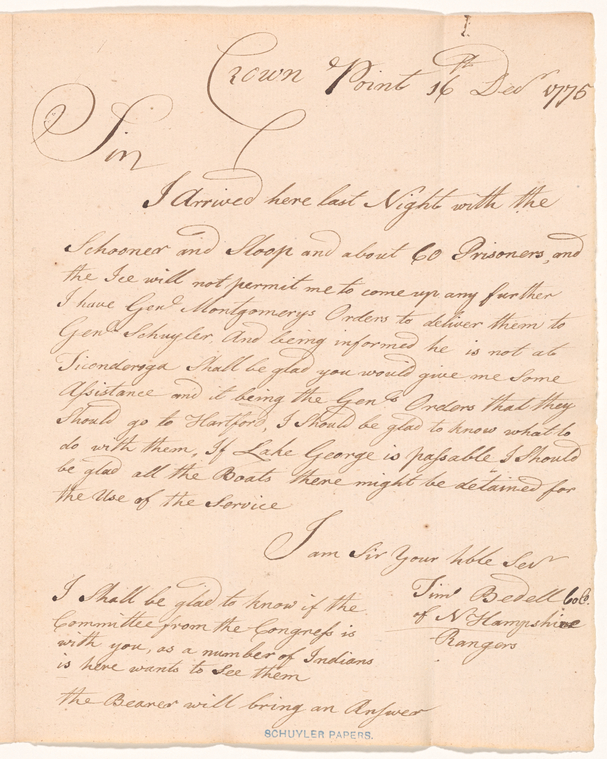 Crown Point 16th Decr 1775
Sir
I Arrived here last Night with the
Schooner and Sloop and about 60 Prisoners, and
the Ice will not permit me to come up any further
I have Genl Montgomerys Orders to deliver them to
Genl Schuyler. And being informed he is not at
Ticonderoga Shall be glad you would give me Some
Assistance and it being the Genls Orders that they
Should go to Hartford, I Should be glad to know what to
do with them, If Lake George is passable I Should
be glad all the Boats there might be detained for
the Use of the Service
I am Sir Your hble Servt
Timo Bedell Colo.
of N Hampshire
Rangers
I Shall be glad to know if the
Committee from the Congress is
with you, as a number of Indians
is here wants to See them
the Bearer will bring an Answer
SCHUYLER PAPERS.